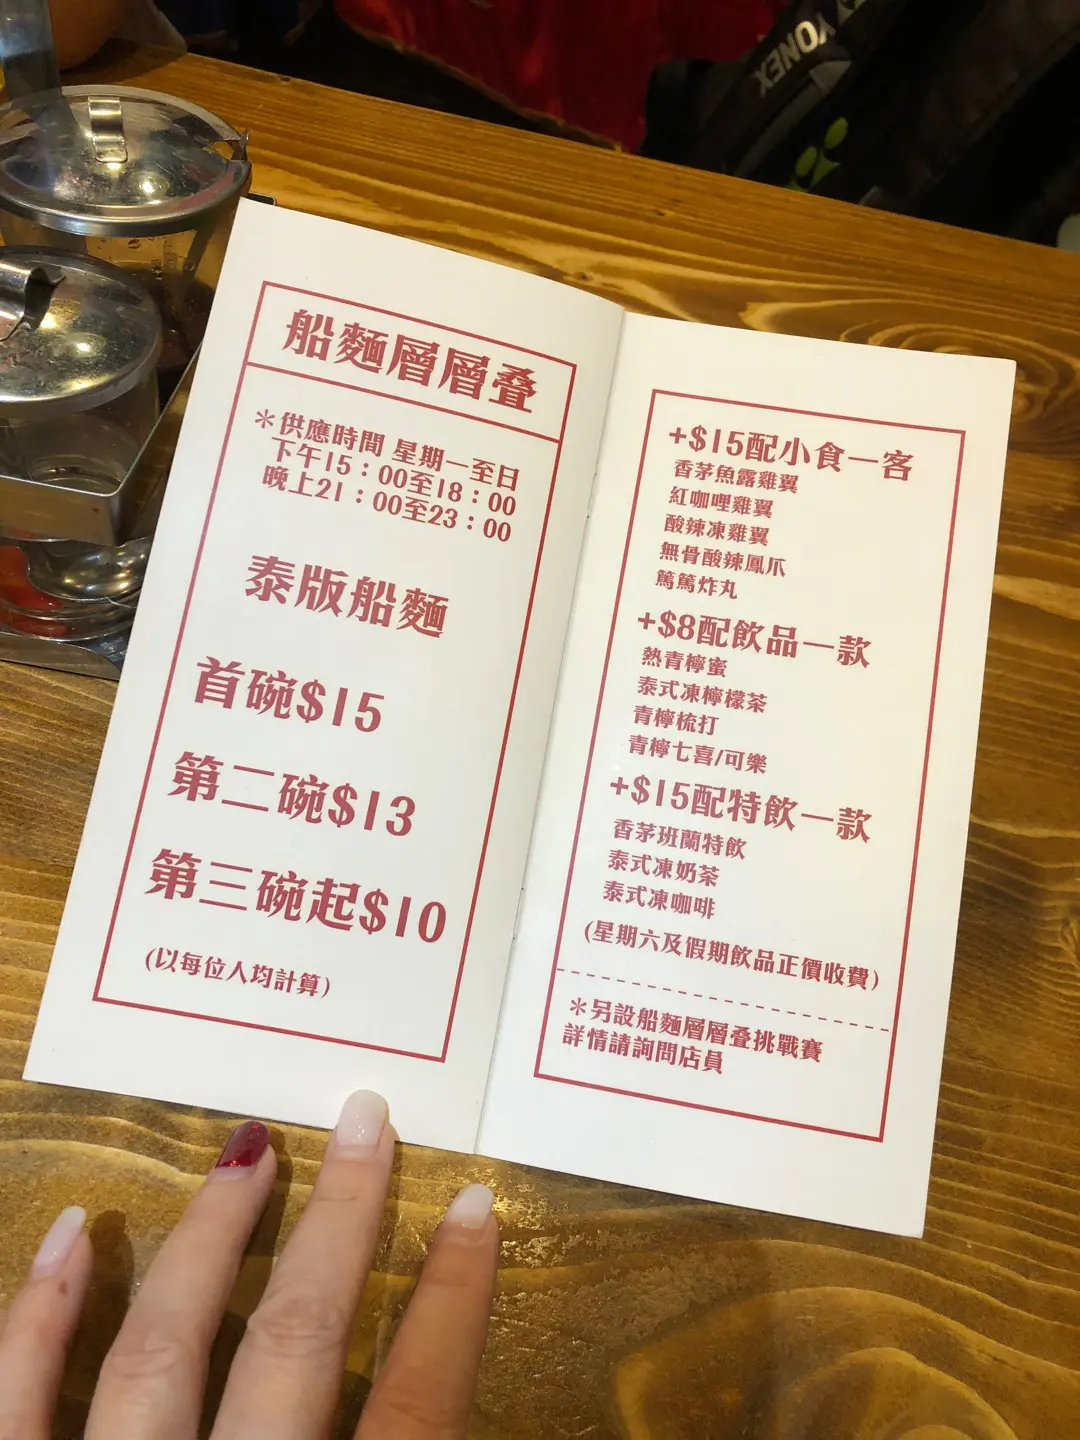 YONEX
船麵層層叠
＊供應時間 星期一至日
下午15：00至18：00
晚上21：00至23：00
泰版船麵
首碗$15
第二碗$13
第三碗起$10
(以每位人均計算)
+$15配小食一客
香茅魚露雞翼
紅咖哩雞翼
酸辣凍雞翼
無骨酸辣鳳爪
篤篤炸丸
+$8配飲品一款
熱青檸蜜
泰式凍檸檬茶
青檸梳打
青檸七喜/可樂
+$15配特飲一款
香茅班蘭特飲
泰式凍奶茶
泰式凍咖啡
(星期六及假期飲品正價收費)
＊另設船麵層層叠挑戰賽
詳情請詢問店員